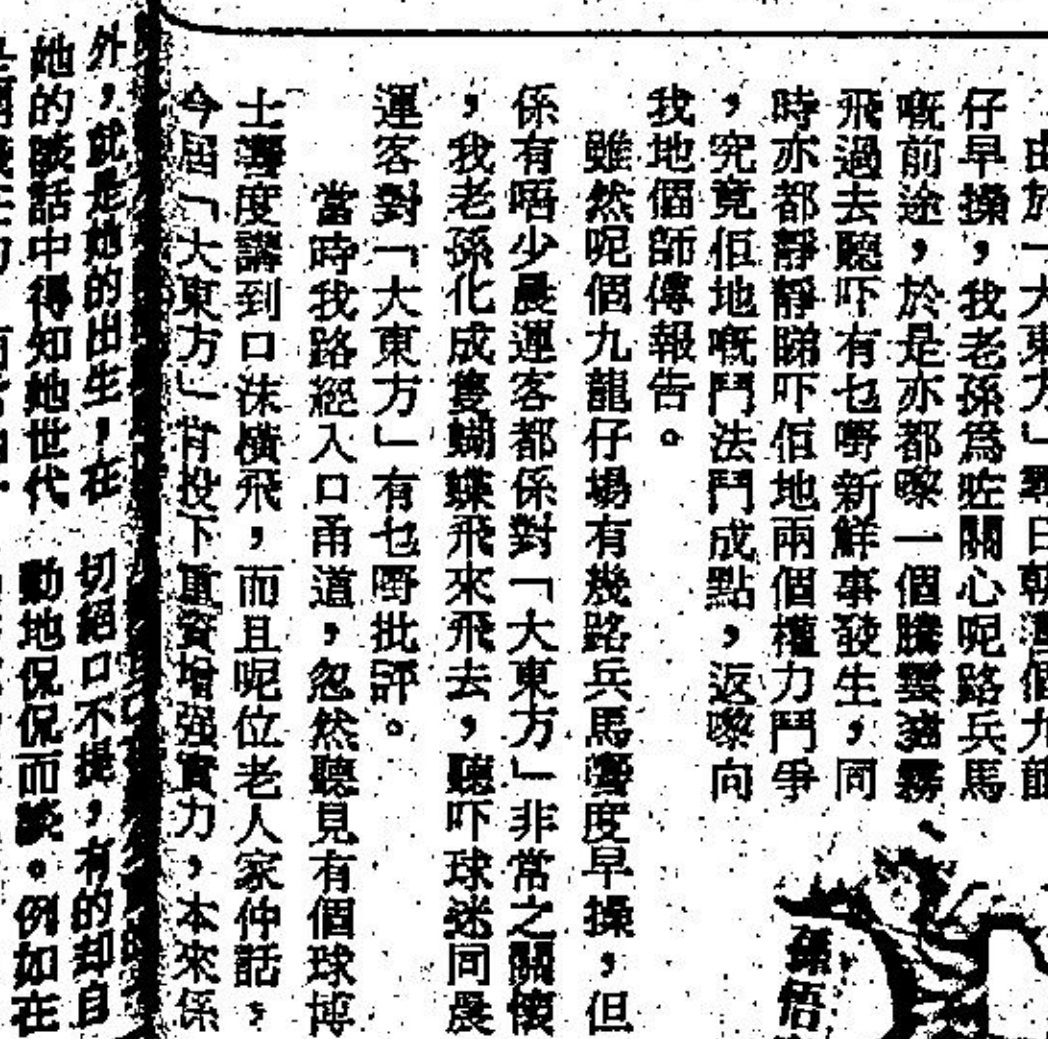 由於「大東方」尋日朝運個九龍
仔早操，我老孫爲咗關心呢路兵馬
嘅前途，於是亦都嚟一個騰雲駕霧
飛過去聽吓有乜嘢新鮮事發生，同
時亦都靜靜睇吓佢地兩個權力鬥爭
，究竟佢地嘅鬥法鬥成點，返嚟向
我地個師傅報告。
雖然呢個九龍仔場有幾路兵馬嚮度早操，但
係有唔少晨運客都係對「大東方」非常之關懷
，我老孫化成隻蝴蝶飛來飛去，聽吓球迷同晨
運客對「大東方」有乜嘢批評。
當時我路經入口甬道，忽然聽見有個球博
士嚮度講到口沫橫飛，而且呢位老人家仲話，
今屆「大東方」肯投下重資增强實力，本來係
孫悟
外，就是她的出生，在
她的談話中得知她世代
切絕口不提，有的却自
動地侃侃而談。例如在